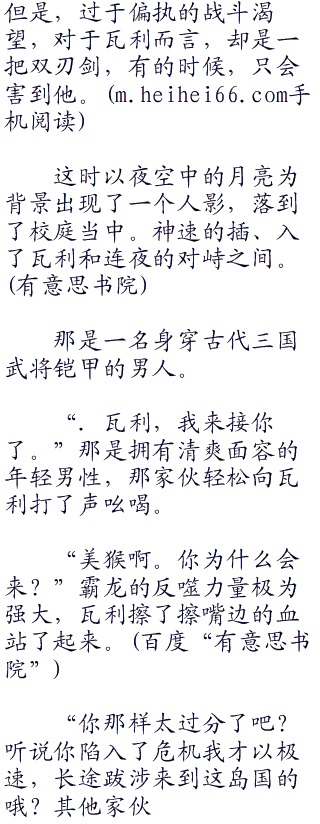 但是，过于偏执的战斗渴
望，对于瓦利而言，却是一
把双刃剑，有的时候，只会
害到他。(m.heihei66.com手
机阅读)
这时以夜空中的月亮为
背景出现了一个人影，落到
了校庭当中。神速的插、入
了瓦利和连夜的对峙之间。
(有意思书院)
那是一名身穿古代三国
武将铠甲的男人。
“．瓦利，我来接你
了。”那是拥有清爽面容的
年轻男性，那家伙轻松向瓦
利打了声吆喝。
“美猴啊。你为什么会
来？”霸龙的反噬力量极为
强大，瓦利擦了擦嘴边的血
站了起来。(百度“有意思书
院”)
“你那样太过分了吧？
听说你陷入了危机我才以极
速，长途跋涉来到这岛国的
哦？其他家伙